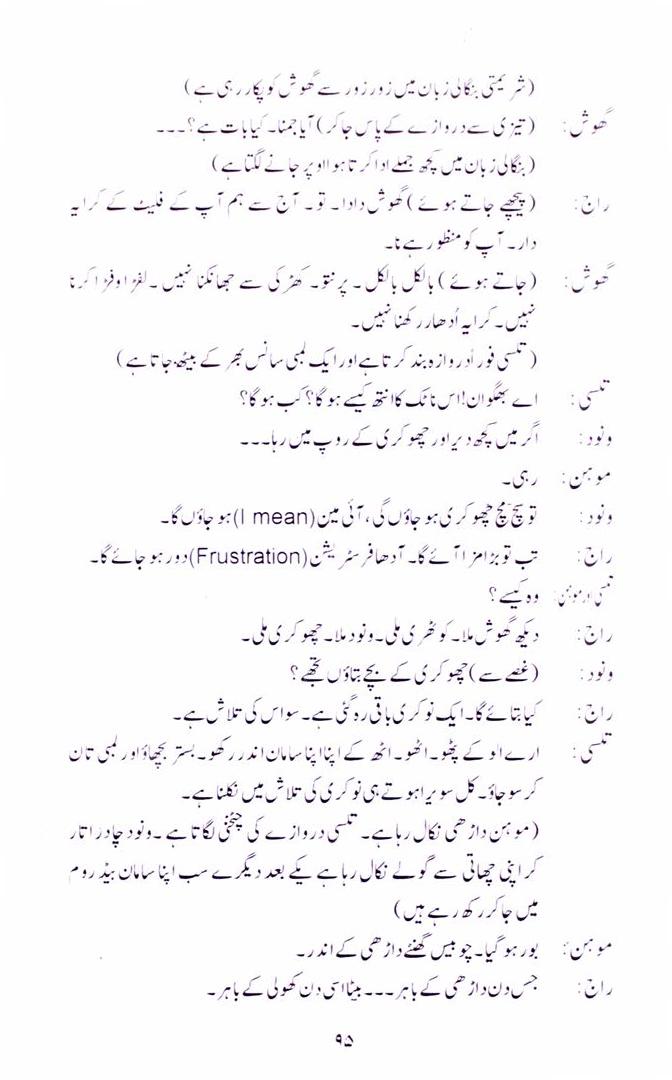 (شریمتی بنگالی زبان میں زور زور سے گھوش کو پکار رہی ہے)
گھوش: (تیزی سے دروازے کے پاس جاکر) آیا جمنا۔ کیا بات ہے؟۔۔۔
(بنگالی زبان میں کچھ جملے ادا کرتا ہوا اوپر جانے لگتا ہے)
راج: (پیچھے جاتے ہوئے) گھوش دادا۔ تو۔ آج سے ہم آپ کے فلیٹ کے کرایہ
دار۔ آپ کو منظور ہے نا۔
گھوش: (جاتے ہوئے) بالکل بالکل۔ پرنتو۔ کھڑکی سے جھانکنا نہیں۔ لفڑا وفڑا کرنا
نہیں۔ کرایہ اُدھار رکھنا نہیں۔
(تلسی فوراً دروازہ بند کرتا ہے اور ایک لمبی سانس بھر کے بیٹھ جاتا ہے)
تلسی: اے بھگوان! اس ناٹک کا انتھ کیسے ہوگا؟ کب ہوگا؟
ونود: اگر میں کچھ دیر اور چھوکری کے روپ میں رہا۔۔۔
موہن: رہی۔
ونود: تو سچ مچ چھوکری ہو جاؤں گی، آئی مین (I mean) ہو جاؤں گا۔
راج: تب تو بڑا مزا آئے گا۔ آدھا فرسٹریشن (Frustration) دور ہو جائے گا۔
تلسی اور موہن: وہ کیسے؟
راج: دیکھ گھوش ملا۔ کوٹھری ملی۔ ونود ملا۔ چھوکری ملی۔
ونود: (غصے سے) چھوکری کے بچے بتاؤں تجھے؟
راج: کیا بتائے گا۔ ایک نوکری باقی رہ گئی ہے۔ سو اس کی تلاش ہے۔
تلسی: ارے الو کے پٹھو۔ اٹھو۔ اٹھ کے اپنا اپنا سامان اندر رکھو۔ بستر بچھاؤ اور لمبی تان
کر سو جاؤ۔ کل سویرا ہوتے ہی نوکری کی تلاش میں نکلنا ہے۔
(موہن داڑھی نکال رہا ہے۔ تلسی دروازے کی چٹخنی لگاتا ہے۔ ونود چادر اتار
کر اپنی چھاتی سے گولے نکال رہا ہے یکے بعد دیگرے سب اپنا سامان بیڈ روم
میں جاکر رکھ رہے ہیں)
موہن: بور ہو گیا۔ چوبیس گھنٹے داڑھی کے اندر۔
راج: جس دن داڑھی کے باہر۔۔۔ بیٹا اسی دن کھولی کے باہر۔
۹۵